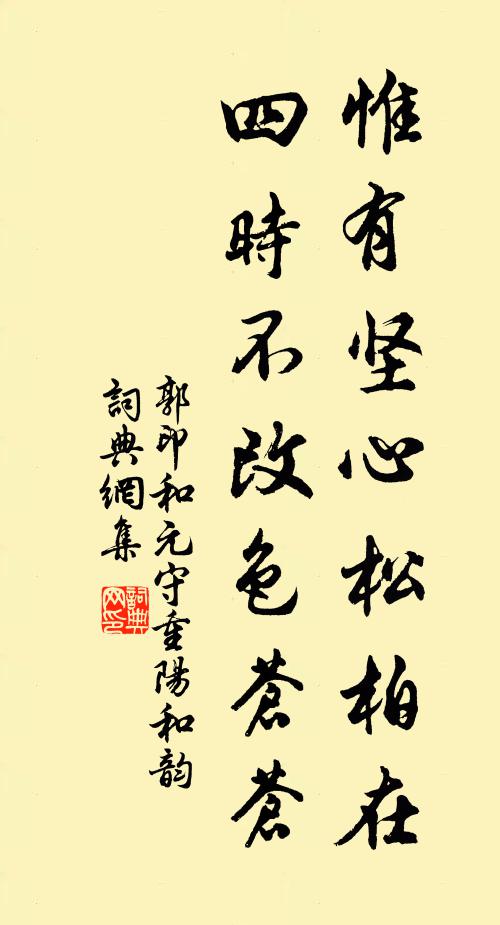 惟有坚心松柏在
四時不改色蒼蒼
郭印和元守重陽和韵
詞典網集
詞典
网印